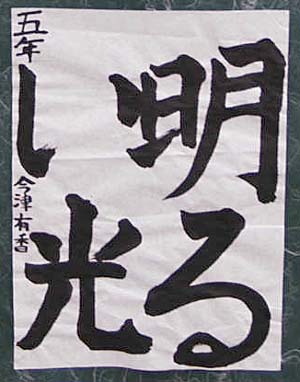 明る
い光
五年
今津有香